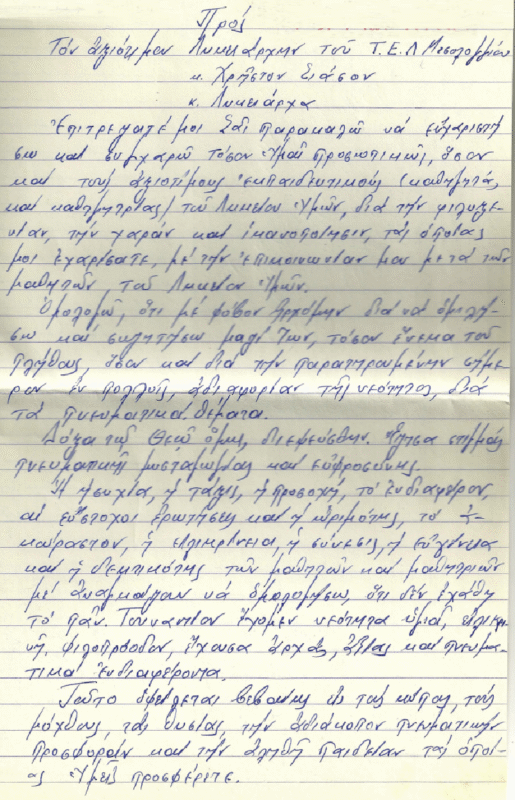 Πρός
Τόν ἀξιότιμον Λυκειάρχην τοῦ Τ.Ε.Λ Μεσολογγίου
κ. Χρῆστον Σιάσον
κ. Λυκειάρχα
Ἐπιτρέψατέ μοι Σᾶς παρακαλῶ νά εὐχαριστή
σω καί συγχαρῶ τόσον Ὑμᾶς προσωπικῶς, ὅσον
καί τούς ἀξιοτίμους ἐκπαιδευτικούς (καθηγητάς
καί καθηγητρίας) τοῦ Λυκείου Ὑμῶν, διά τήν φιλοξε-
νίαν, τήν χαράν καί ἱκανοποίησιν, τάς ὁποίας
μοι ἐχαρίσατε, μέ τήν ἐπικοινωνίαν μου μετά τῶν
μαθητῶν, τοῦ Λυκείου Ὑμῶν.
Ὁμολογῶ, ὅτι μέ φόβον ἠρχόμην διά νά ὁμιλή-
σω καί συζητήσω μαζί των, τόσον ἕνεκα τοῦ
πλήθους, ὅσον καί διά τήν παρατηρουμένην σήμε
ρον ἐν πολλοῖς, ἀδιαφορίαν τῆς νεότητος, διά
τά πνευματικά θέματα.
Δόξα τῷ Θεῷ ὅμως, διεψεύσθην. Ἔζησα στιγμάς
πνευματικῆς μυσταγωγίας καί εὐφροσύνης.
Ἡ ἡσυχία, ἡ τάξις, ἡ προσοχή, τό ἐνδιαφέρον,
αἱ εὔστοχοι ἐρωτήσεις καί ἡ ὡριμότης, τό ἀ-
κούραστον, ἡ εἰλικρίνεια, ἡ σύνεσις, ἡ εὐγένεια
καί ἡ δεκτικότης τῶν μαθητῶν καί μαθητριῶν
μέ ἀναγκάζουν νά ὁμολογήσω, ὅτι δέν ἐχάθη
τό πᾶν. Τοὐναντίον ἔχομεν νεότητα ὑγιᾶ, εἰλικρι
νῆ, φιλοπρόοδον, ἔχουσα ἀρχάς, ἀξίας καί πνευμα-
τικά ἐνδιαφέροντα.
Τοῦτο ὀφείλεται βεβαίως εἰς τούς κόπους, τούς
μόχθους, τάς θυσίας, τήν ἀδιάκοπον πνευματικήν
προσφοράν καί τήν ἀληθῆ παιδείαν τάς ὁποί-
ας Ὑμεῖς προσφέρετε.